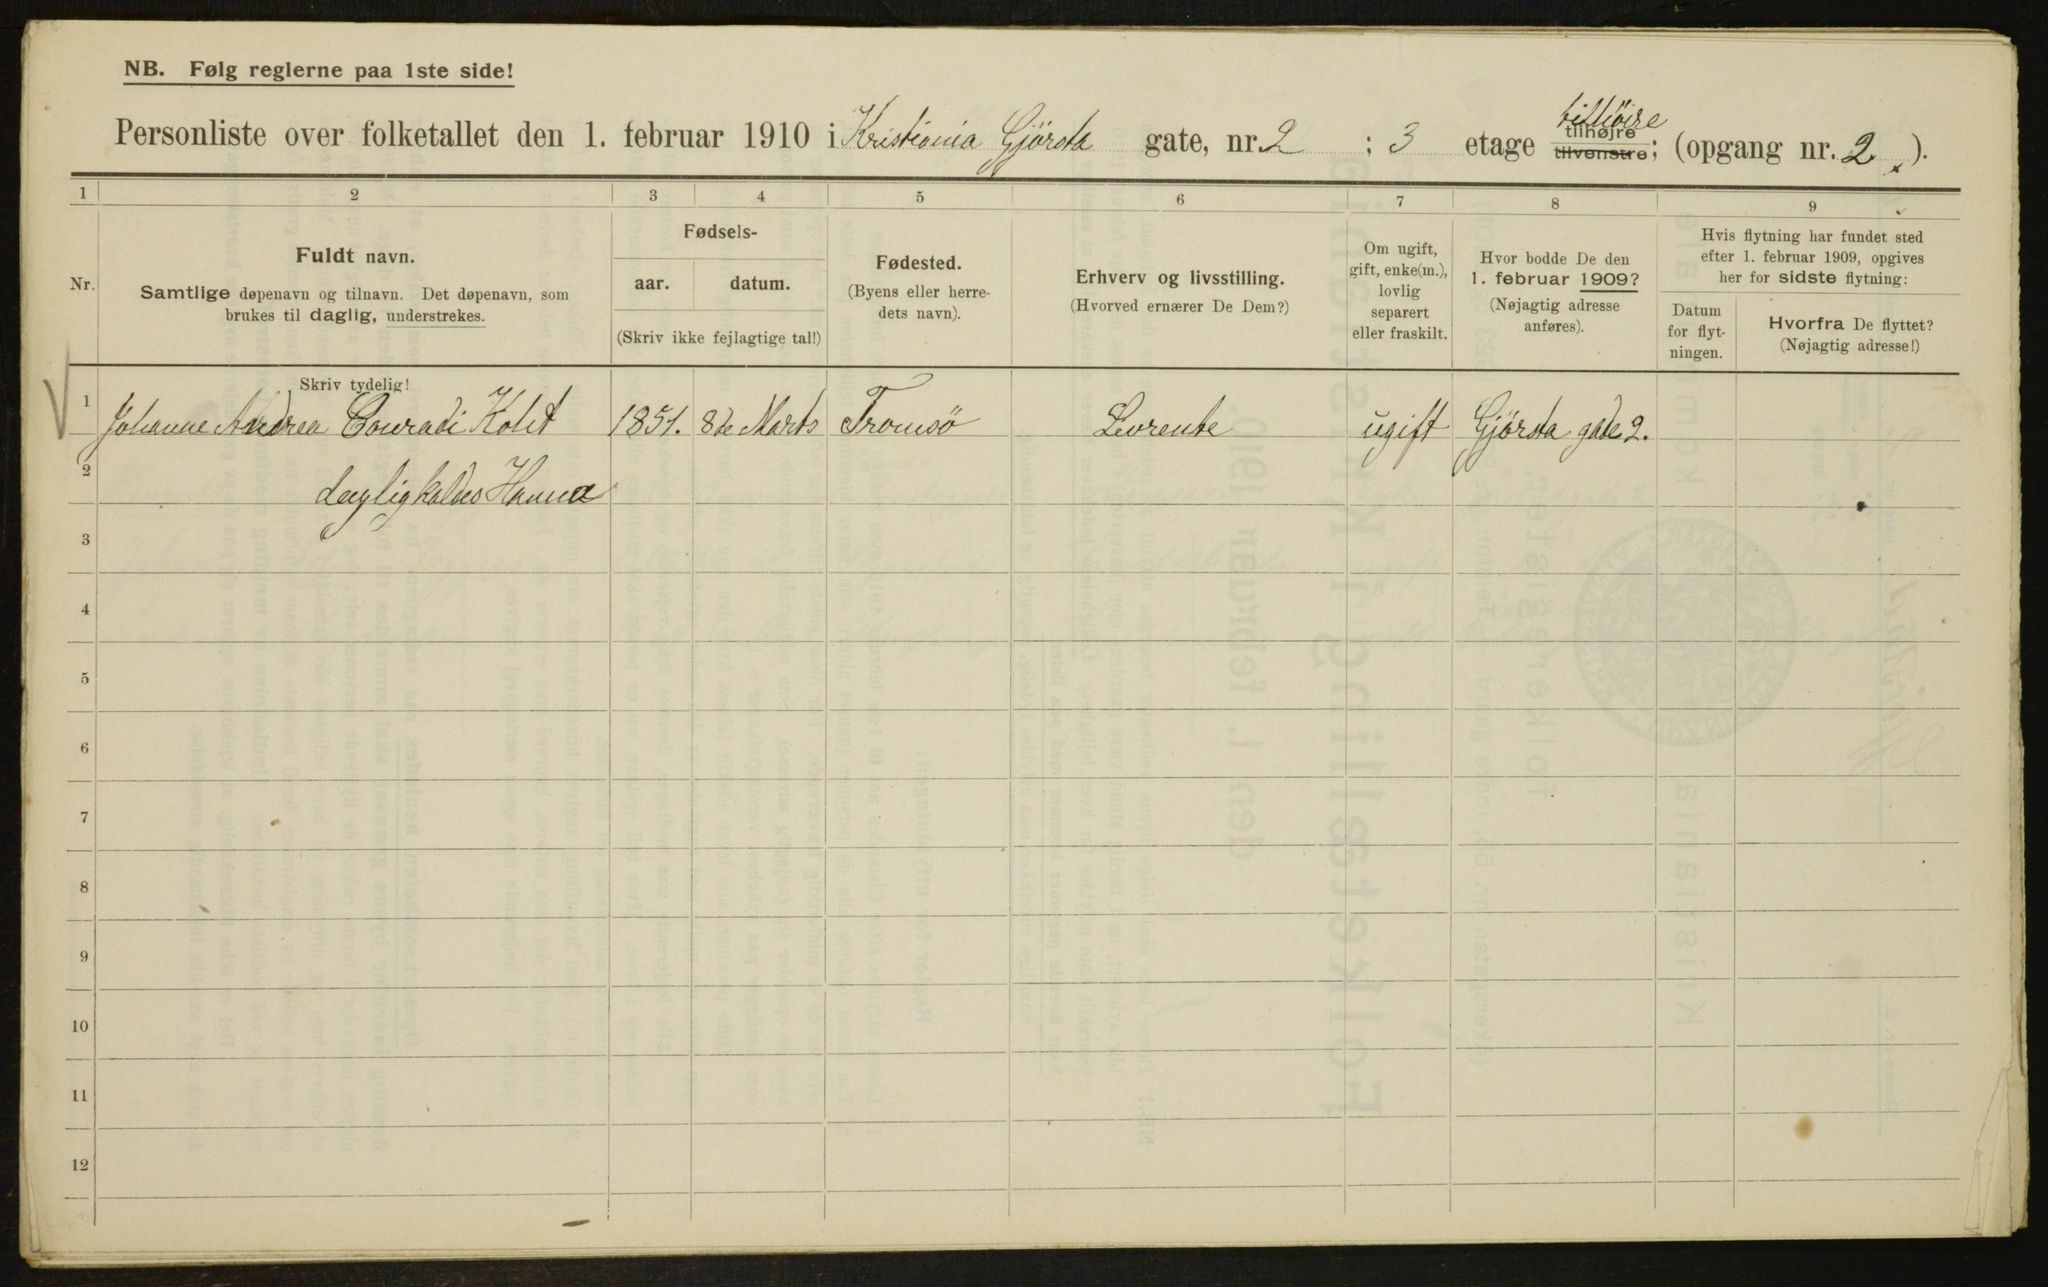 NB. Følg reglerne paa 1ste side!
Personliste over folketallet den 1. februar 1910 i Kristiania Gjörsta gate, nr. 2 ; 3 etage tilhöire tilhøjre tilvenstre; (opgang nr. 2. ).
1 2 3 4 5 6 7 8 9
Nr.
Fuldt navn.
Samtlige døpenavn og tilnavn. Det døpenavn, som
brukes til daglig, understrekes.
Fødsels-
aar. datum.
(Skriv ikke fejlagtige tal!)
Fødested.
(Byens eller herre-
dets navn).
Erhverv og livsstilling.
(Hvorved ernærer De Dem?)
Om ugift,
gift, enke(m.),
lovlig
separert
eller fraskilt.
Hvor bodde De den
1. februar 1909?
(Nøjagtig adresse
anføres).
Hvis flytning har fundet sted
efter 1. februar 1909, opgives
her for sidste flytning:
Datum
for flyt-
ningen.
Hvorfra De flyttet?
(Nøjagtig adresse!)
Skriv tydelig!
1 Johanne Andrea Conradi Holst 1851. 8de Marts Tromsö Levrente ugift Gjörsta gade 2.
2 dagligkaldes Hanna
3
4
5
6
7
8
9
10
11
12